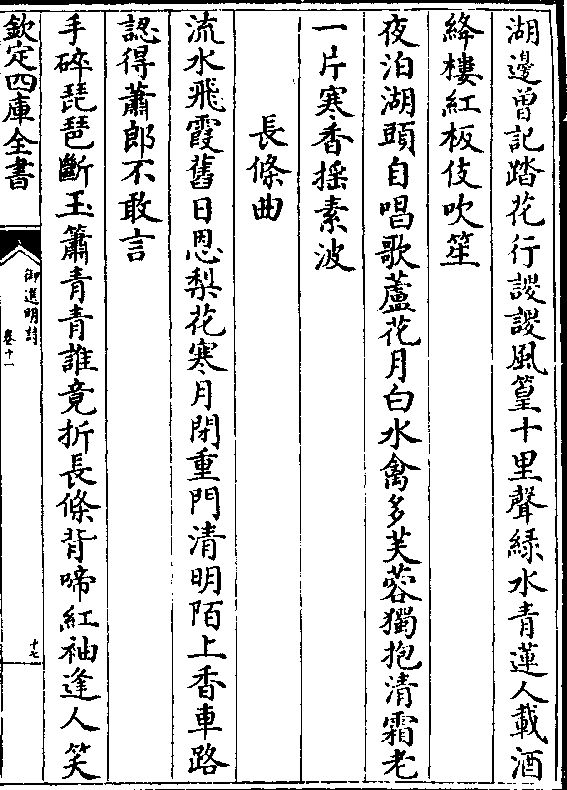 湖邊曾記踏花行謖謖風篁十里聲綠水青蓮人載酒
絳樓紅板伎吹笙
夜泊湖頭自唱歌蘆花月白水禽多芙蓉獨抱清霜老
一片寒香揺素波
長條曲
流水飛霞舊日恩梨花寒月閉重門清明陌上香車路
認得蕭郎不敢言
手碎琵琶斷玉簫青青誰竟折長條背啼紅袖逢人笑
欽定四庫全書
御選明詩
卷十一
十七